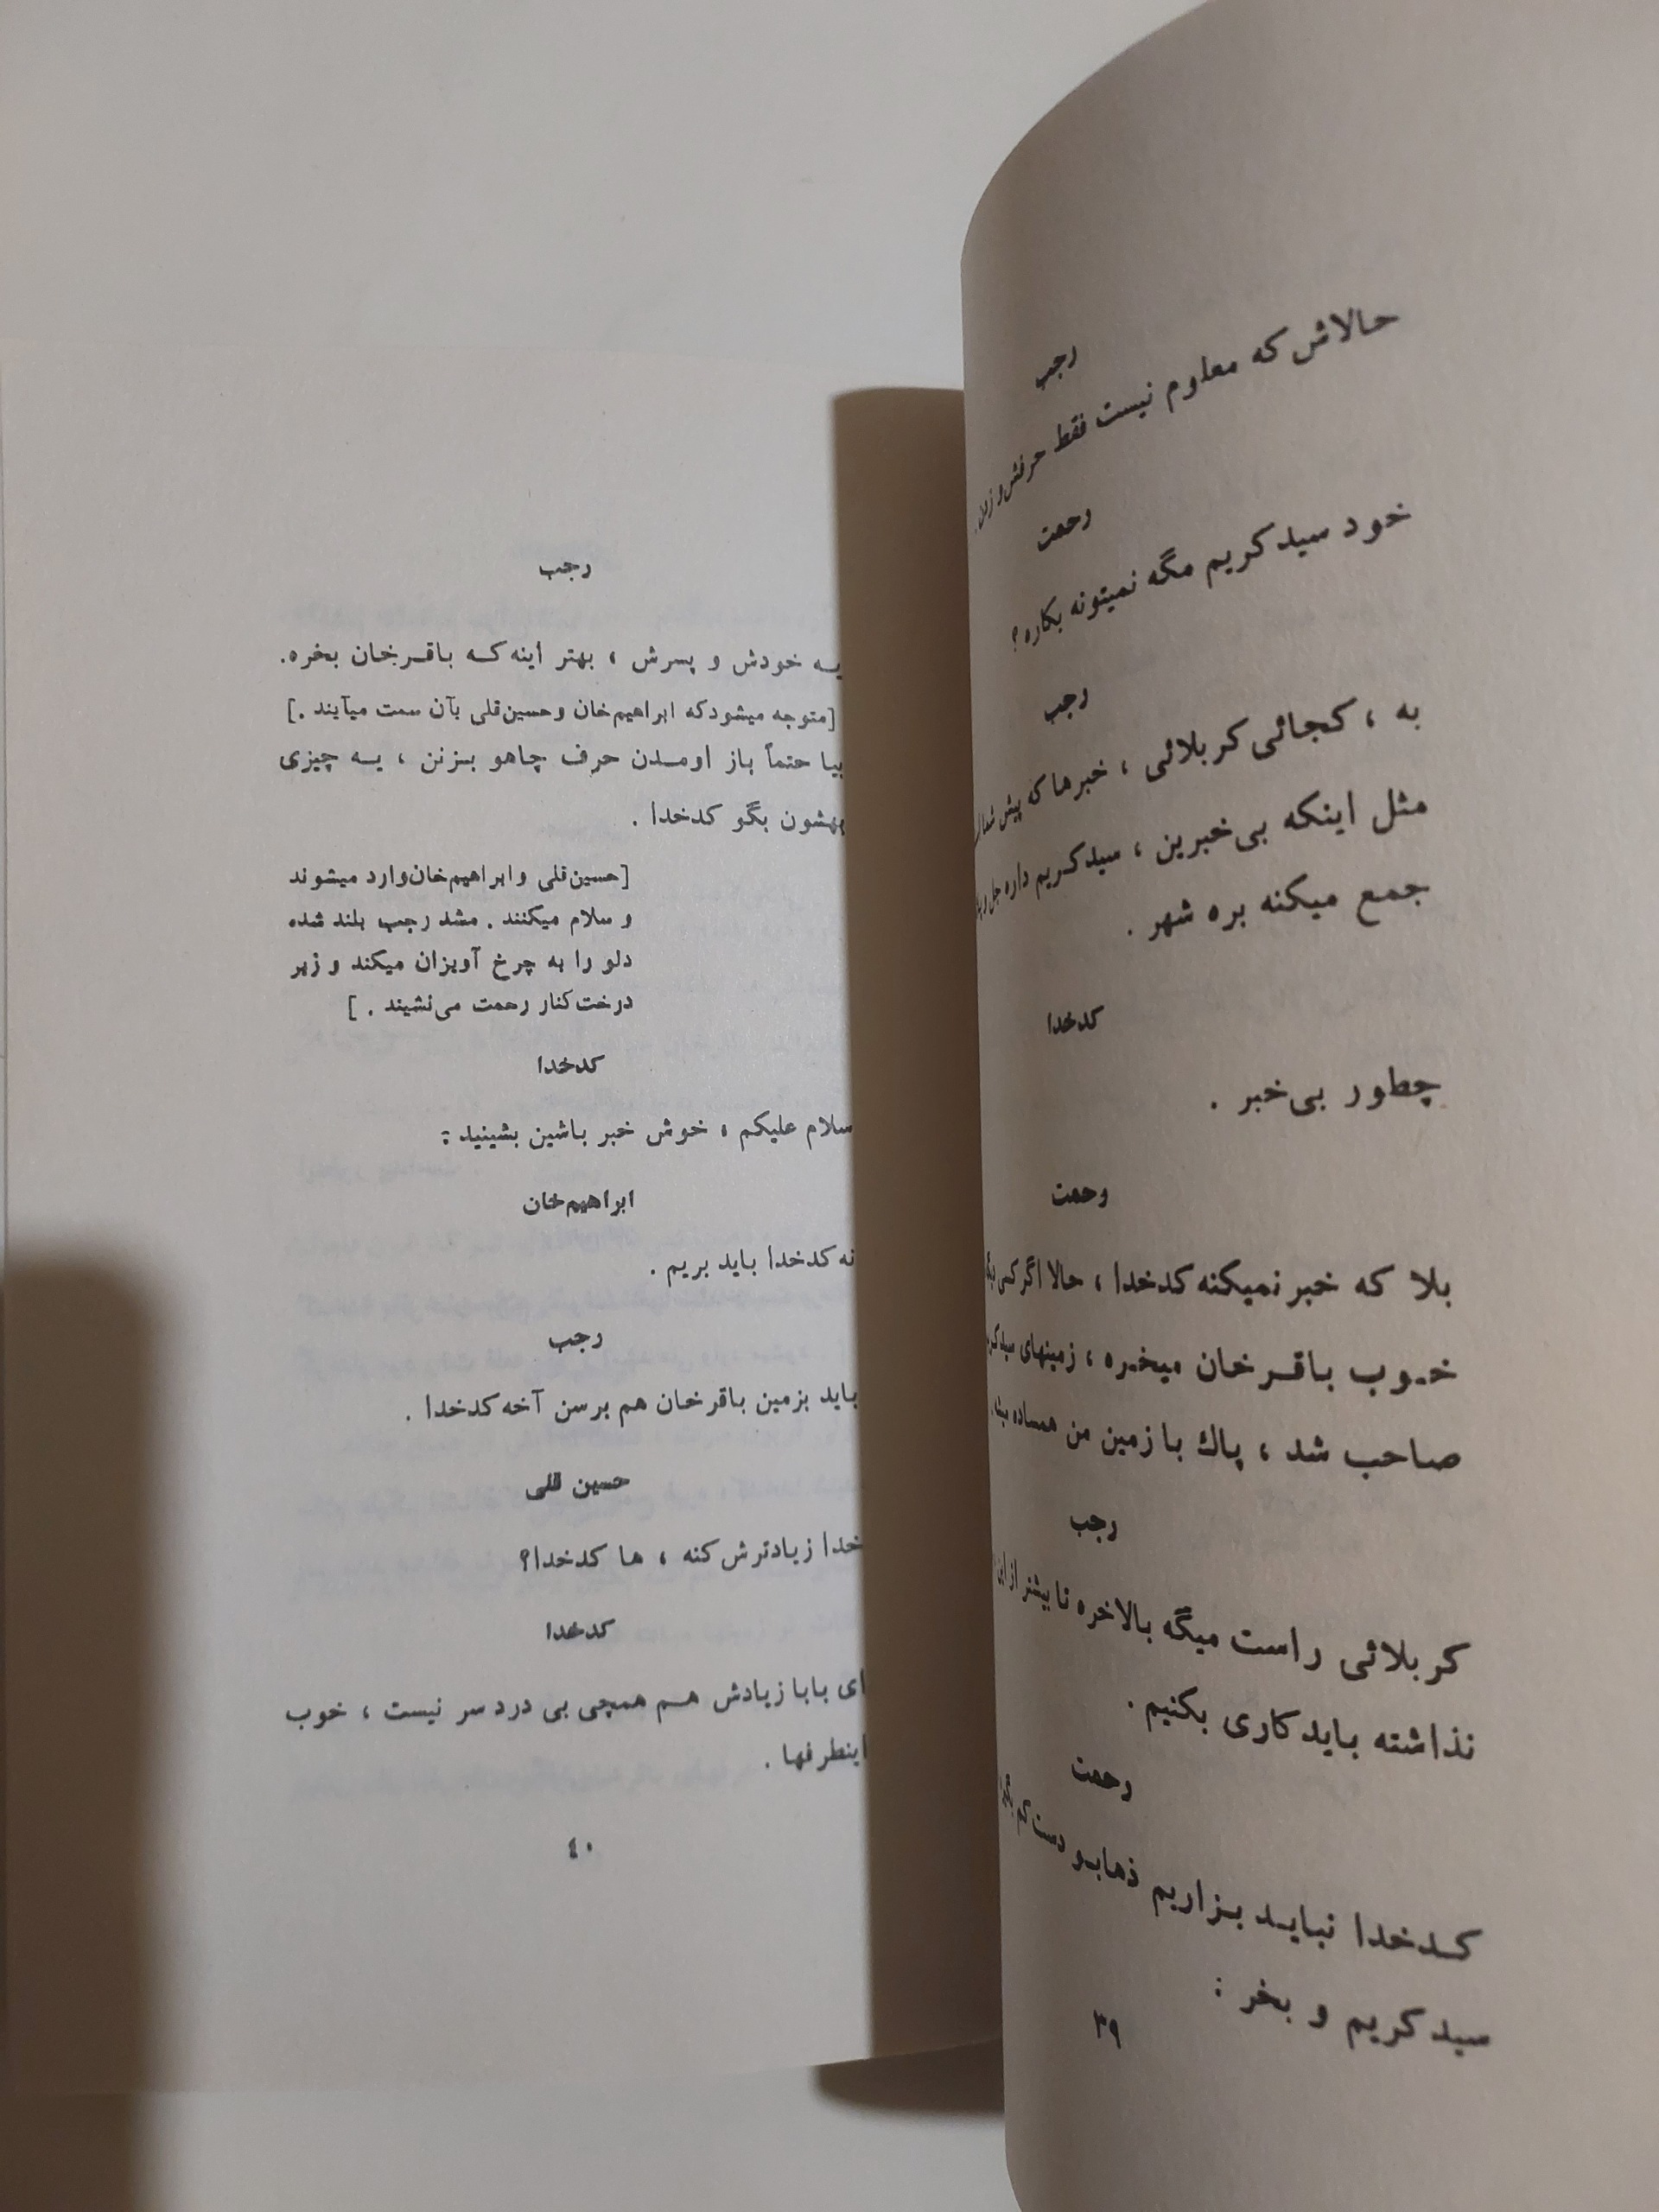 رجب
حالاش که معلوم نیست فقط حرفش و زدن .
رحمت
خود سید کریم مگه نمیتونه بکاره ؟
رجب
به ، کجائی کربلائی ، خبرها که پیش
مثل اینکه بی‌خبرین ، سید کریم داره جل و
جمع میکنه بره شهر .
کدخدا
چطور بی‌خبر .
رحمت
بلا که خبر نمیکنه کدخدا ، حالا اگر کسی
خوب باقرخان میخره ، زمینهای
صاحب شد ، پاك با زمین من همساده
رجب
کربلائی راست میگه بالاخره تا بیشتر از این
نذاشته باید کاری بکنیم .
رحمت
کدخدا نباید بزاریم ذهاب و دست کم
سید کریم و بخر :
۳۹
رجب
یه خودش و پسرش ، بهتر اینه که باقرخان بخره.
[متوجه میشود که ابراهیم‌خان و حسین‌قلی بآن سمت میآیند .]
بیا حتماً باز اومدن حرف چاهو بزنن ، یه چیزی
بهشون بگو کدخدا .
[حسین‌قلی و ابراهیم‌خان وارد میشوند
و سلام میکنند . مشد رجب بلند شده
دلو را به چرخ آویزان میکند و زیر
درخت کنار رحمت می‌نشیند . ]
کدخدا
سلام علیکم ، خوش خبر باشین بشینید :
ابراهیم‌خان
نه کدخدا باید بریم .
رجب
باید بزمین باقرخان هم برسن آخه کدخدا .
حسین قلی
خدا زیادترش کنه ، ها کدخدا؟
کدخدا
ای بابا زیادش هم همچی بی درد سر نیست ، خوب
اینطرفها .
٤٠